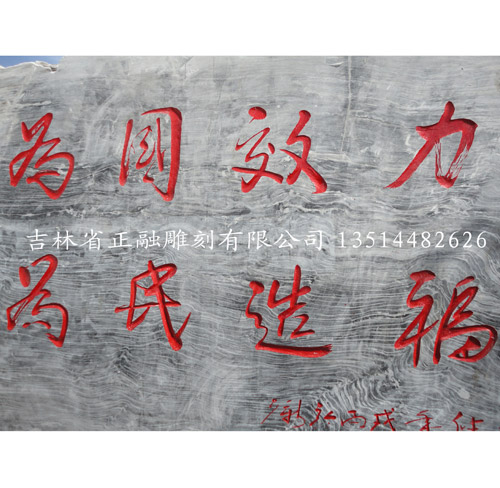 為國效力
吉林省正融雕刻有限公司 13514482626
為民造福